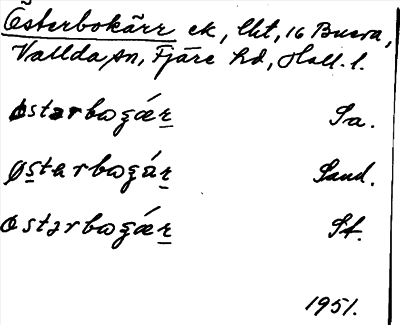 Österbokärr ek, lht, 16 Buera,
Vallda sn, Fjäre hd, Hall. l.
østərbogǽr Sa.
østarbogár Sand.
østərbogǽr St.
1951.